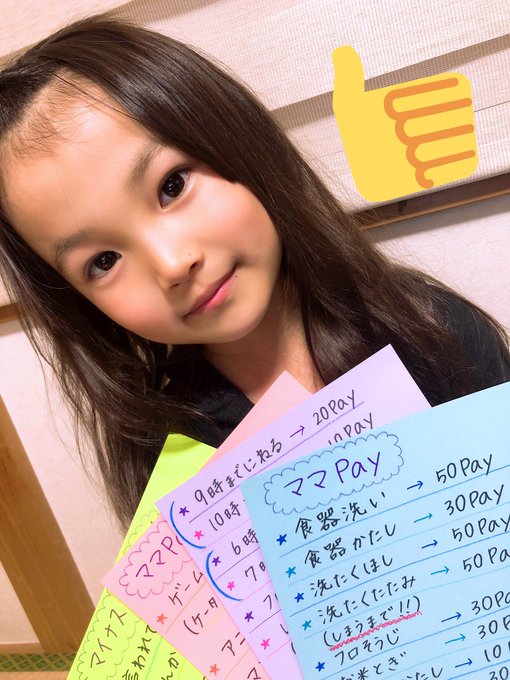 ママPay
食器洗い → 50Pay
食器かたし → 30Pay
洗たくほし → 50Pay
洗たくたたみ → 50Pay
(しまうまで!!)
フロそうじ → 30Pa
お米とぎ → 30P
かたし → 10P
30
9時までにねる → 20Pay
10時 10Pay
6時
7時
ママPa
ゲーム
(ケータ
アニ
マイナス
言われ